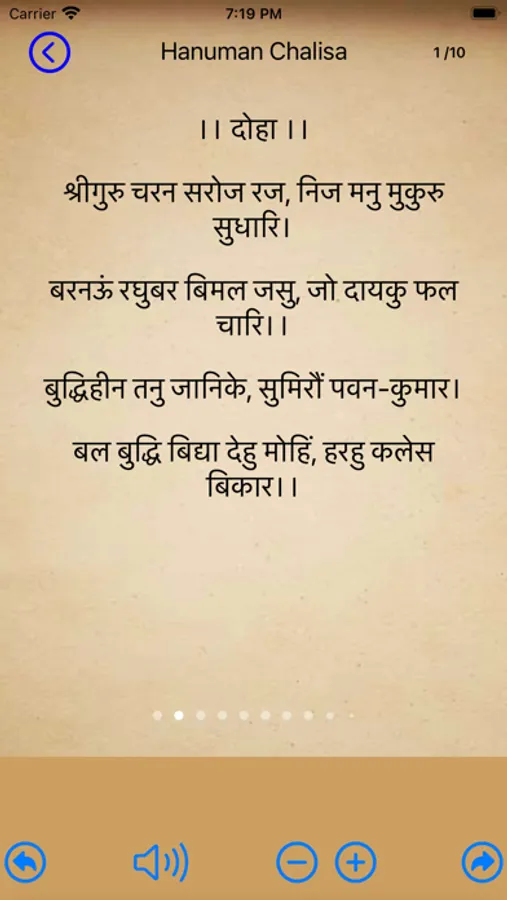 Carrier 7:19 PM
Hanuman Chalisa 1/10
।। दोहा ।।
श्रीगुरु चरन सरोज रज, निज मनु मुकुरु
सुधारि।
बरनऊं रघुबर बिमल जसु, जो दायकु फल
चारि।।
बुद्धिहीन तनु जानिके, सुमिरौं पवन-कुमार।
बल बुद्धि बिद्या देहु मोहिं, हरहु कलेस
बिकार।।